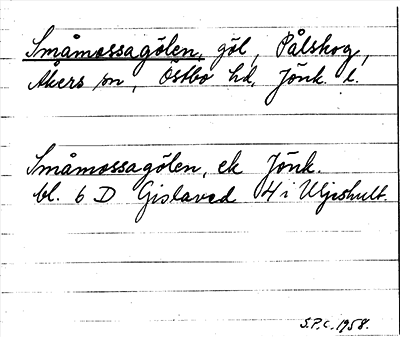 Småmossagölen, göl, Pålskog,
Åkers sn, Östbo hd, Jönk. l.
Småmossagölen, ek Jönk.
bl. 6 D Gislaved 4 i Uljeshult.
S.P.C. 1958.